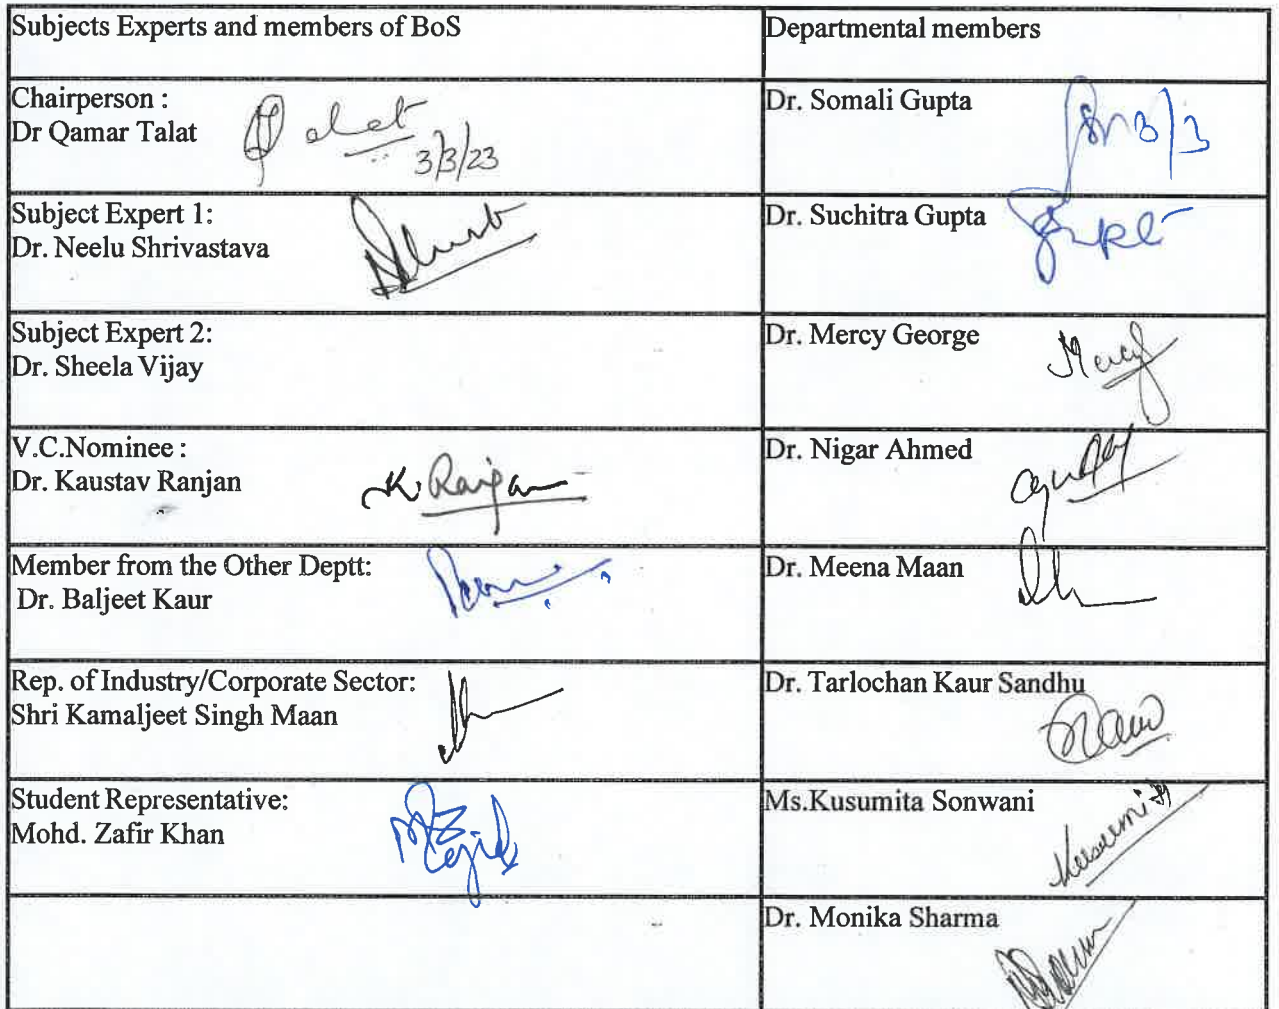 Subjects Experts and members of BoS
Departmental members
Chairperson :
Dr Qamar Talat
Talat
3/3/23
Dr. Somali Gupta
3/3
Subject Expert 1:
Dr. Neelu Shrivastava
Dr. Suchitra Gupta
Subject Expert 2:
Dr. Sheela Vijay
Dr. Mercy George
Mercy
V.C.Nominee :
Dr. Kaustav Ranjan
K. Ranjan
Dr. Nigar Ahmed
Member from the Other Deptt:
Dr. Baljeet Kaur
Dr. Meena Maan
Rep. of Industry/Corporate Sector:
Shri Kamaljeet Singh Maan
Dr. Tarlochan Kaur Sandhu
Student Representative:
Mohd. Zafir Khan
Ms.Kusumita Sonwani
Kusumita
Dr. Monika Sharma